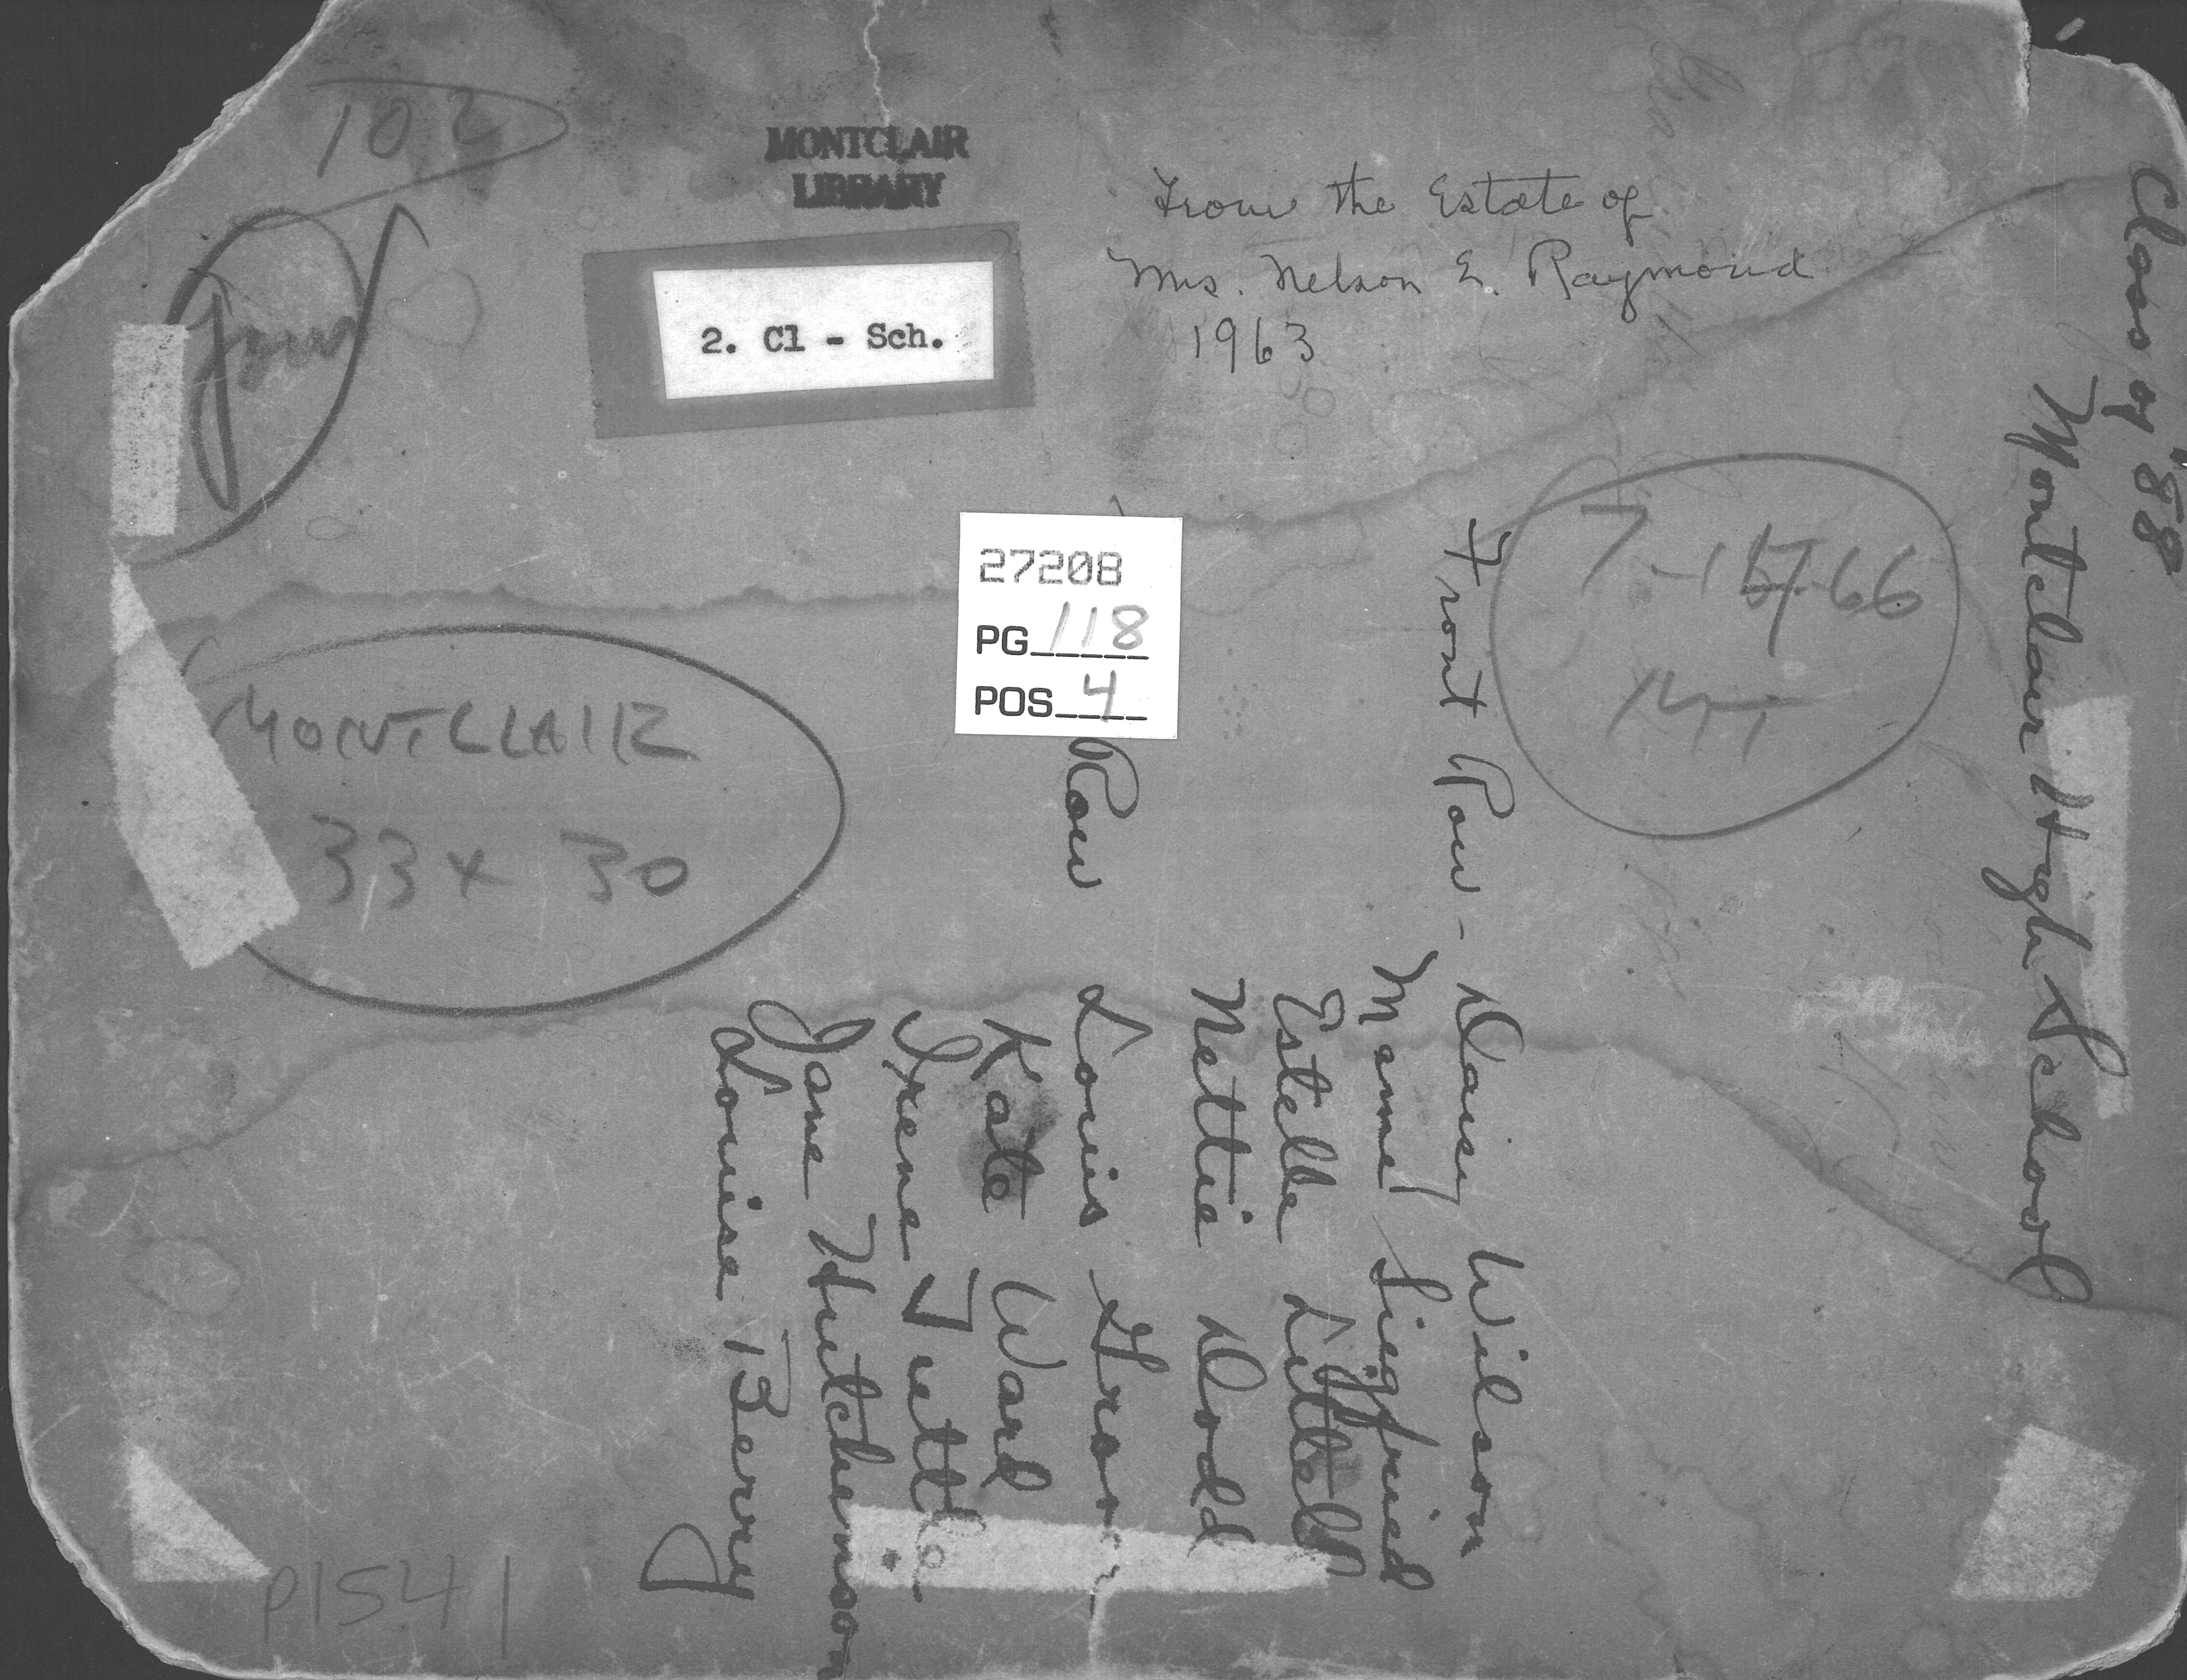 102
MONTCLAIR
LIBRARY
2. Cl - Sch.
From the Estate of
Mrs. Nelson E. Raymond
1963
27208
PG 118
POS 4
MONTCLAIR
33 x 30
P1541
Class of "88
Montclair High School
Front Row - Daisy Wilson
Mame Siegfried
Estelle Littell
Nettie Dodd
Row Louis
Kate Ward
Irene Tuttle
Jane Hutchinson
Louise Berry